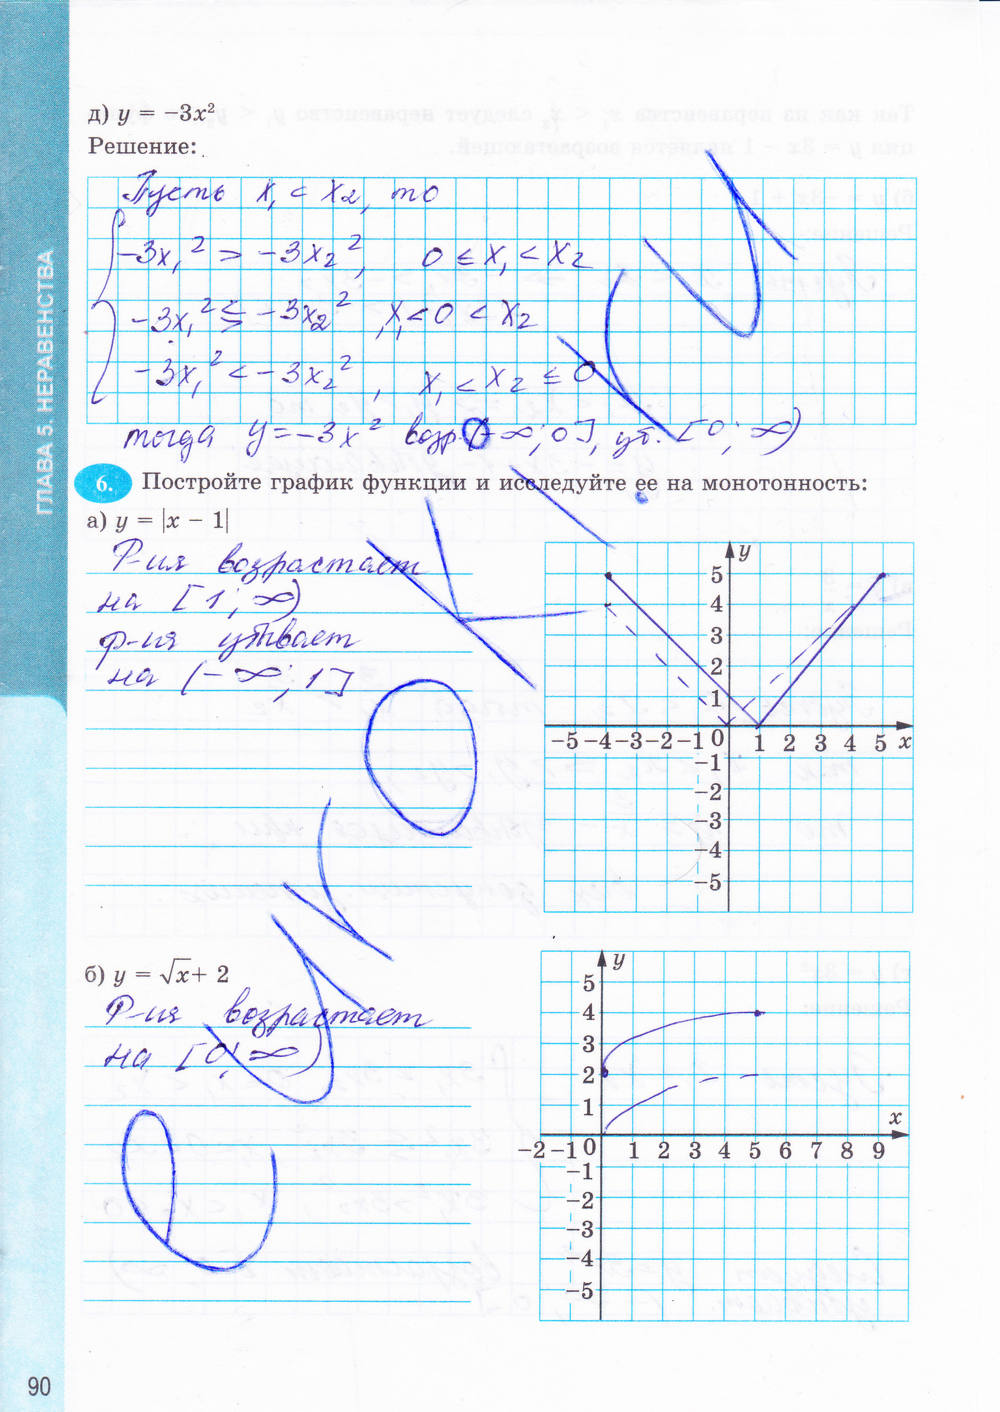 д) y = −3x²
Решение:
Пусть x₁ < x₂, то
−3x₁² > −3x₂², 0 ≤ x₁ < x₂
−3x₁² ≤ > −3x₂², x₁ < 0 < x₂
−3x₁² < −3x₂², x₁ < x₂ ≤ 0
тогда y = −3x² возр. (−∞; 0], уб. [0; ∞)
6. Постройте график функции и исследуйте ее на монотонность:
а) y = |x − 1|
Ф-ия возрастает
на [1; ∞)
ф-ия убывает
на (−∞; 1]
y
5
4
3
2
1
−5 −4 −3 −2 −1 0 1 2 3 4 5 x
−1
−2
−3
−4
−5
б) y = √x + 2
Ф-ия возрастает
на [0; ∞)
y
5
4
3
2
1
x
−2 −1 0 1 2 3 4 5 6 7 8 9
−1
−2
−3
−4
−5
ГЛАВА 5. НЕРАВЕНСТВА
90